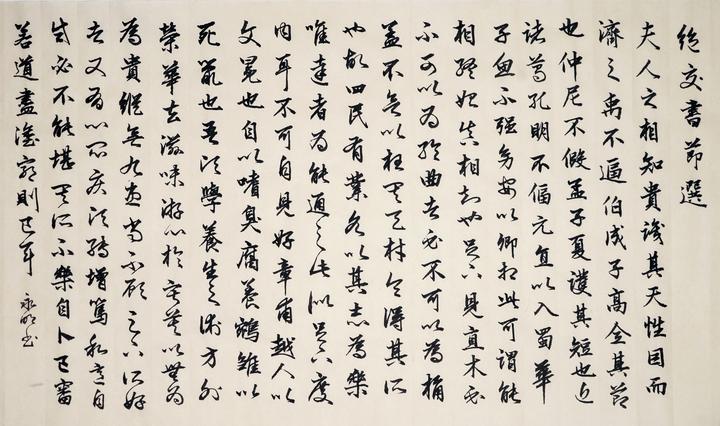 絕交書節選
夫人之相知貴識其天性因而
濟之禹不逼伯成子高全其節
也仲尼不假盖子夏護其短也近
諸葛孔明不偪元直以入蜀華
子魚不強幼安以卿相此可謂能
相終始真相知也足下見直木必
不可以為輪曲者必不可以為桷
盖不欲以枉其天材令得其所
也故四民有業各以其志為樂
唯達者為能通之此似足下度
內耳不可自見好章甫越人以
文冕也自以嗜臭腐養鵷雛以
死鼠也吾頃學養生之術方外
榮華去滋味游心於寂寞以無為
為貴縱無九患尚不顧足下所好
者又有心悶疾頃轉增篤私意自
試必不能堪其所不樂自卜已審
若道盡塗窮則已耳
永明书